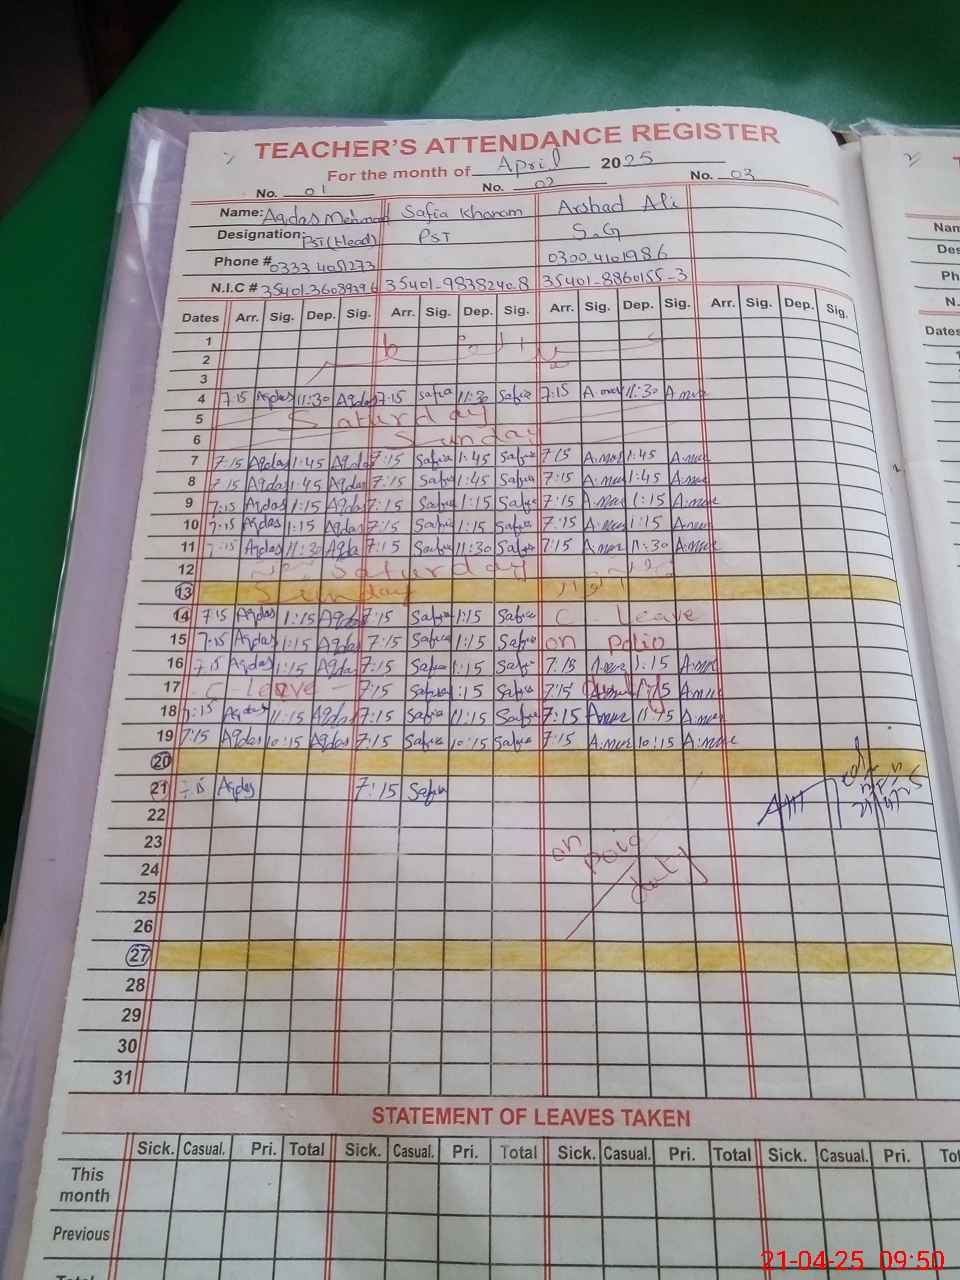 TEACHER'S ATTENDANCE REGISTER
For the month of April 2025
No. 01 No. 02 No. 03
Name: Aqdas Mehmood Safia Khanam Arshad Ali
Designation: PST (Head) PST S.G
Phone # 0333 4051273 0300.4101986
N.I.C # 35401-36089396 35401-9838240.8 35401-8860155-3
Dates Arr. Sig. Dep. Sig. Arr. Sig. Dep. Sig. Arr. Sig. Dep. Sig. Arr. Sig. Dep. Sig.
1
2
3
4 7:15 Aqdas 11:30 Aqdas 7:15 Safia 11:30 Safia 7:15 11:30
5 Saturday
6 Sunday
7 7:15 Aqdas 1:45 Aqdas 7:15 Safia 1:45 Safia 7:15 1:45
8 7:15 Aqdas 1:45 Aqdas 7:15 Safia 1:45 Safia 7:15 1:45
9 7:15 Aqdas 1:15 Aqdas 7:15 Safia 1:15 Safia 7:15 1:15
10 7:15 Aqdas 1:15 Aqdas 7:15 Safia 1:15 Safia 7:15 1:15
11 7:15 Aqdas 11:30 Aqda 7:15 Safia 11:30 Safia 7:15 11:30
12 Saturday
13 Sunday
14 7:15 Aqdas 1:15 Aqdas 7:15 Safia 1:15 Safia C - Leave
15 7:15 Aqdas 1:15 Aqdas 7:15 Safia 1:15 Safia on Polio
16 7:15 Aqdas 1:15 Aqdas 7:15 Safia 1:15 Safia 7:15 1:15
17 C - Leave - 7:15 Safia 1:15 Safia 7:15
18 7:15 Aqdas 11:15 Aqdas 7:15 Safia 11:15 Safia 7:15 11:15
19 7:15 Aqdas 10:15 Aqdas 7:15 Safia 10:15 Safia 7:15 10:15
20
21 7:15 Aqdas 7:15 Safia
22
23 on polio
24 duty
25
26
27
28
29
30
31
STATEMENT OF LEAVES TAKEN
Sick. Casual. Pri. Total Sick. Casual. Pri. Total Sick. Casual. Pri. Total Sick. Casual. Pri.
This month
Previous
21-04-25 09:50